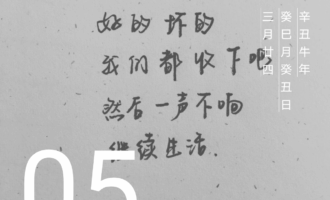 好的坏的
我们都收下吧
然后一声不响
继续生活.
辛丑牛年
癸巳月癸丑日
三月廿四
05